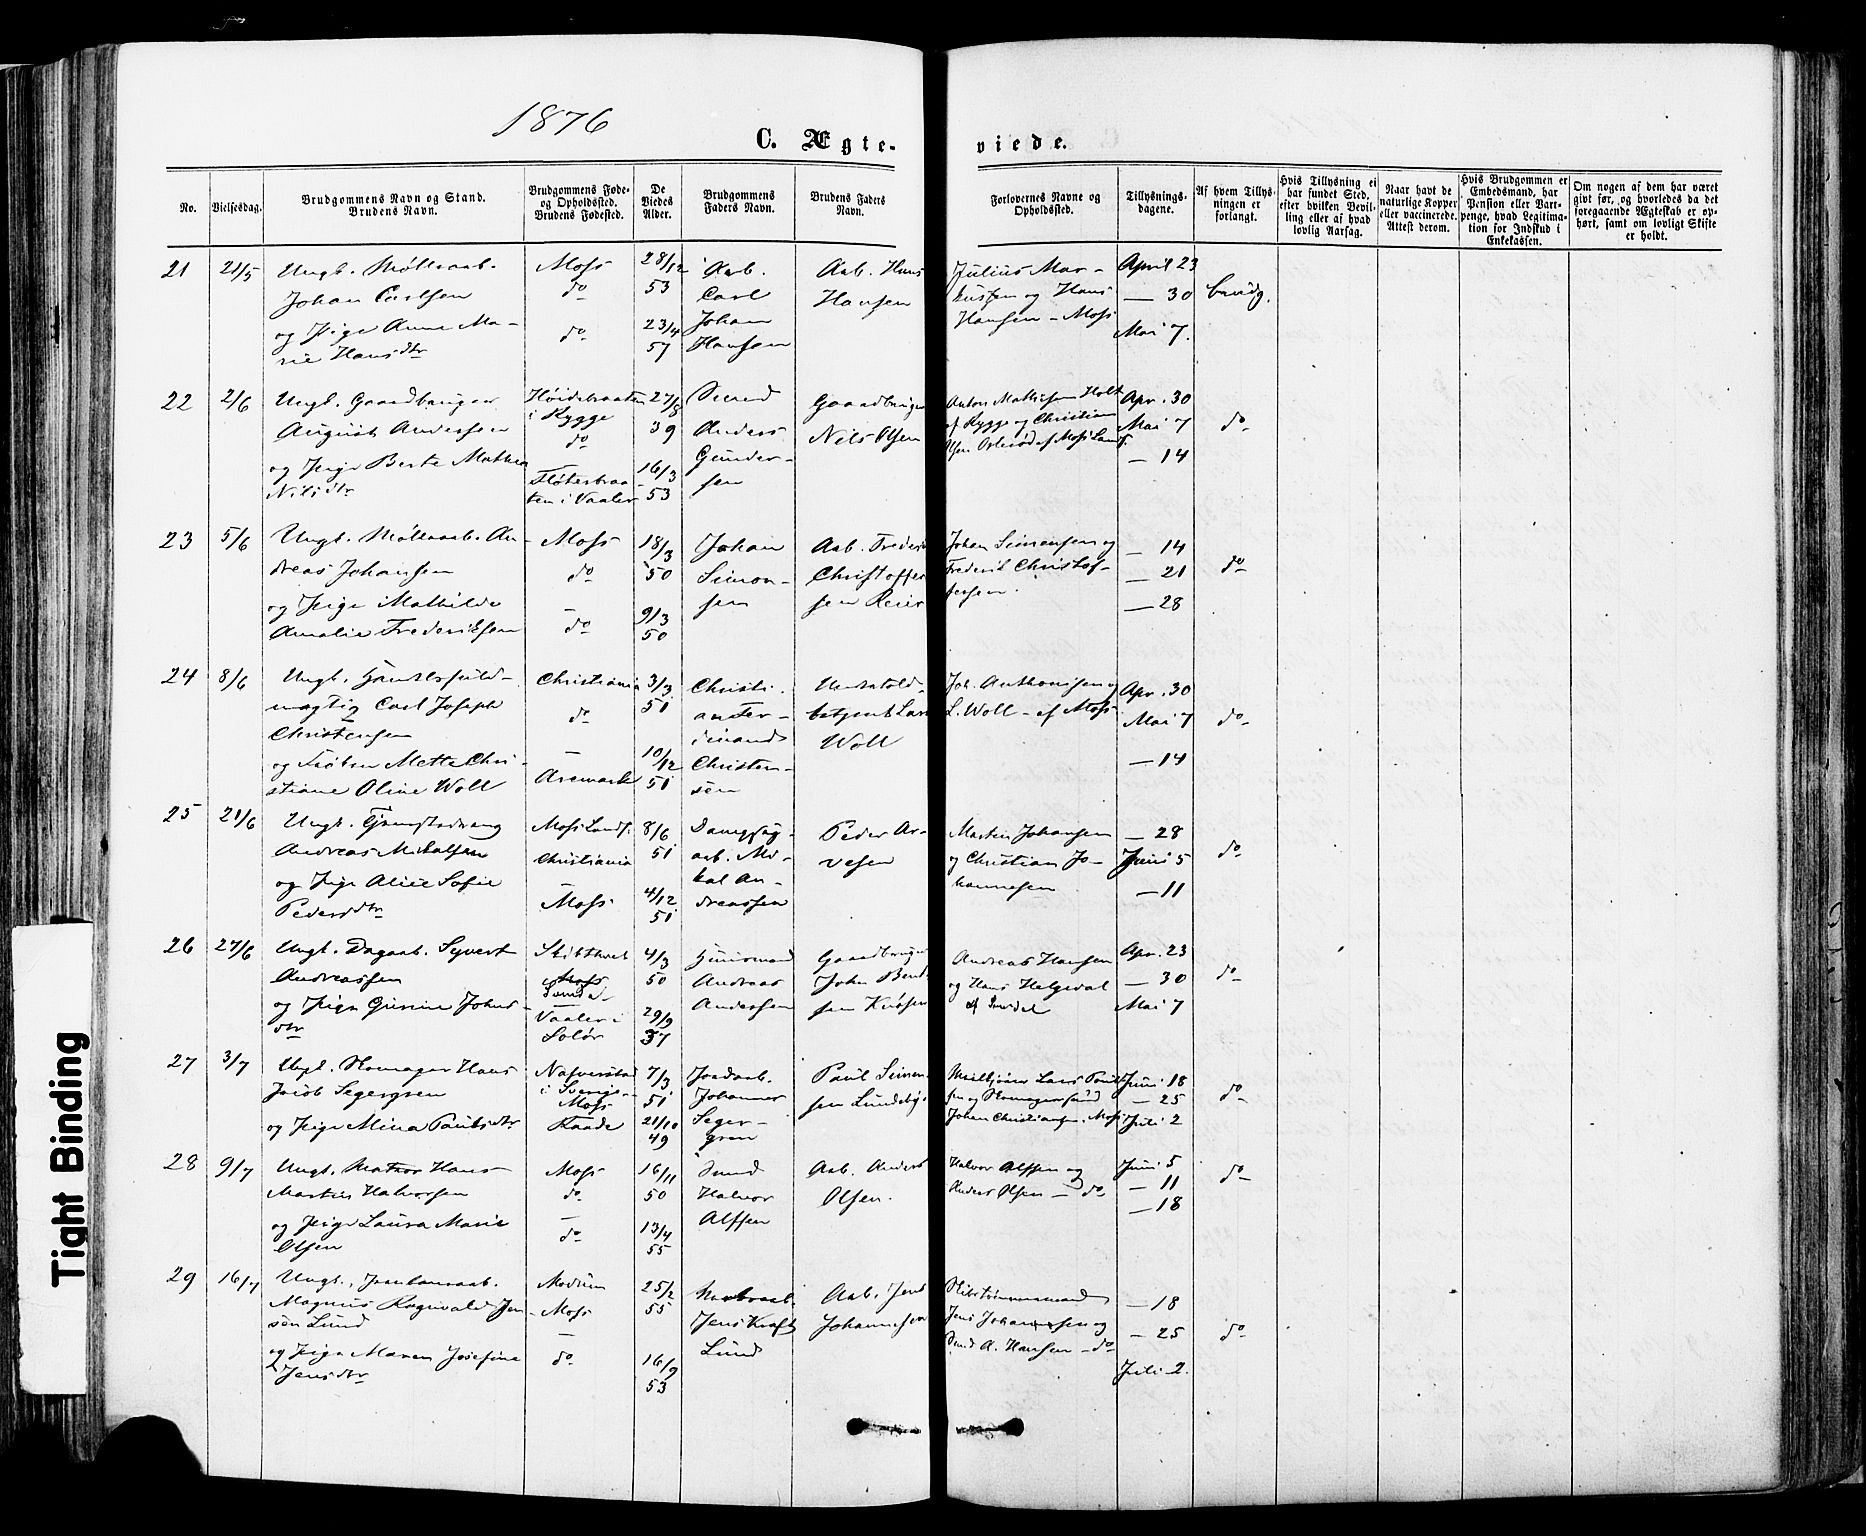 1876
C. Ægte-
viede.
No.
Vielsesdag.
Brudgommens Navn og Stand.
Brudens Navn.
Brudgommens Føde-
og Opholdssted.
Brudens Fødested.
De
Viedes
Alder.
Brudgommens
Faders Navn.
Brudens Faders
Navn.
Forlovernes Navne og
Opholdssted.
Tillysnings-
dagene.
Af hvem Tillys-
ningen er
forlangt.
Hvis Tillysning ei
har fundet Sted,
efter hvilken Bevil-
ling eller af hvad
lovlig Aarsag.
Naar havt de
naturlige Kopper
eller vaccinerede.
Attest derom.
Hvis Brudgommen er
Embedsmand, har
Pension eller Vart-
penge, hvad Legitima-
tion for Indskud i
Enkekassen.
Om nogen af dem har været
givt før, og hvorledes da det
foregaaende Ægteskab er op-
hørt, samt om lovligt Skifte
er holdt.
21
21/5
Ungk. Møllearb.
Johan Carlsen
og Pige Anne Ma-
rie Hansdtr
Moss
do
do
28/12
53
23/4
57
Arb.
Carl
Johan
Hansen
Arb. Hans
Hansen
Julius Mar-
kussen og Hans
Hansen - Moss
April 23
— 30
Mai 7.
Brudg.
22
2/6
Ungk. Gaardbruger
August Andersen
og Pige Berte Mathea
Nilsdtr
i Rygge
do
—
ten i Vaaler
27/8
39
16/3
53
Anders
Gunder-
sen
Gaardbruger
Nils Olsen
Anton Mathisen Holt
af Rygge og Christian
Olsen af Moss Lands.
Apr. 30
Mai 7
— 14
do
23
5/6
Ungk. Møllearb. An-
dreas Johansen
og Pige Mathilde
Amalie Frederiksen
Moss
do
—
do
18/3
50
9/3
50
Johan
Simon-
sen
Arb. Frederik
Christoffer-
sen Reier
Johan Simensen og
Frederik Christof-
fersen.
— 14
— 21
— 28
do
24
8/6
Ungk. Handelsfuld-
mægtig Carl Joseph
Christensen
og Frøken Mette Chri-
stiane Oline Woll
Christiania
do
—
Aremark
3/3
51
10/12
51
Christi-
an Fer-
dinand
Christen-
sen
Lars
Woll
Joh. Anthonisen og
L. Woll - af Moss
Apr. 30
Mai 7
— 14
do
25
21/6
Ungk.
Andreas Mikalsen
og Pige Alice Sofie
Pedersdtr
Moss Lands.
Christiania
—
Moss
8/6
51
4/12
51
Dampsag-
arb. Mi-
kal An-
dreassen
Peder Ar-
vesen
Martin Johansen
og Christian Jo-
hannesen
— 28
Juni 5
— 11
do
26
27/6
Ungk. Dagarb. Syvert
Andreassen
og Pige Gurine Johns-
dtr
Skibtvet
—
Vaaler i
Solør
4/3
50
29/9
37
Huusmand
Andreas
Andersen
Gaardbruger
John Bend-
sen
Andreas Hansen
og Hans
Apr. 23
— 30
Mai 7
do
27
3/7
Ungk. Skomager Hans
Jacob Segergren
og Pige Mina Paulsdtr
Nafverstad
i Sverige
Moss
Raade
7/3
51
21/10
49
Jordarb.
Johannes
Seger-
gren
Paul Simen-
sen Lundeby.
Lars Paul-
sen og Skomagersvend
Johan Christiansen. Moss
Juni 18
— 25
Juli 2
do
28
9/7
Ungk. Matros Hans
Martin Halvorsen
og Pige Laura Marie
Olsen
Moss
do
—
do
16/11
50
13/4
55
Halvor
Alfsen
Arb. Anders
Olsen.
Halvor Alfsen og
Anders Olsen - do
Juni 5
— 11
— 18
do
29
16/7
Ungk.
Magnus Ragnvald Jen-
sen Lund
og Pige Maren Josefine
Jensdtr
Modum
Moss
—
do
25/2
55
16/9
53
Jens Kraft
Lund
Arb. Jens
Johannesen
Jens Johannesen og
A. Hansen - do
— 18
— 25
Juli 2.
do
Tight Binding